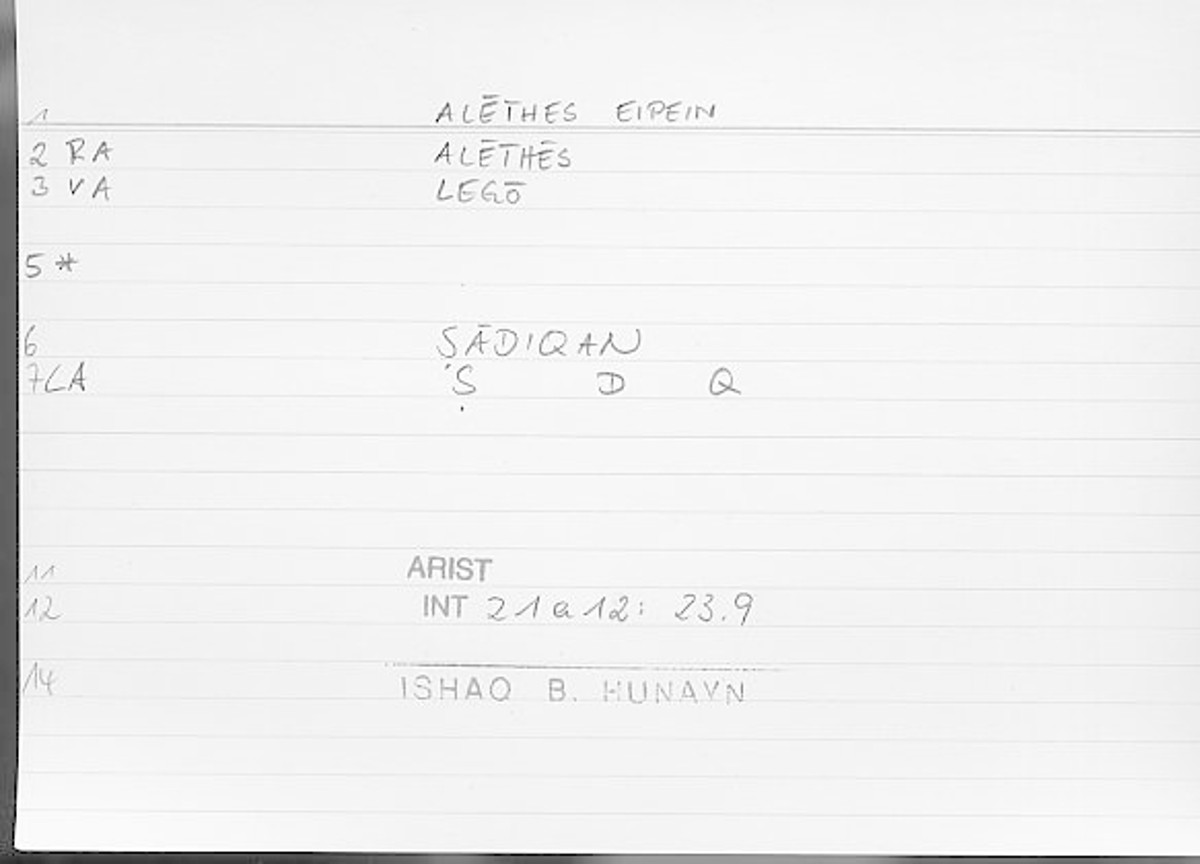 1 ALĒTHES EIPEIN
2 RA ALĒTHĒS
3 VA LEGŌ
5 *
6 ṢĀDIQAN
7 CA Ṣ D Q
11 ARIST
12 INT 21 a 12: 23.9
14 ISHAQ B. HUNAYN